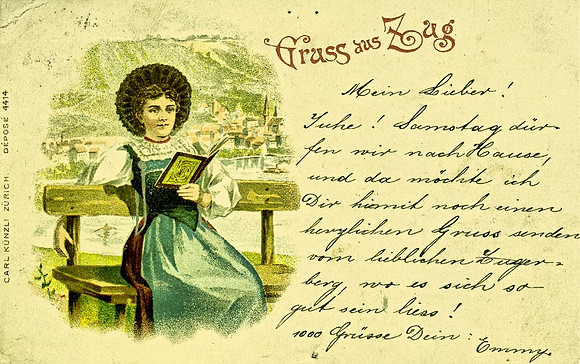 Gruss aus Zug
Mein Lieber!
Juhe! Samstag dür-
fen wir nach Hause,
und da möchte ich
Dir hiemit noch einen
herzlichen Gruss senden
vom lieblichen Zuger-
berg, wo es sich so
gut sein liess!
1000 Grüsse Dein: Emmy.
CARL KÜNZLI ZÜRICH. DÉPOSÉ 4414